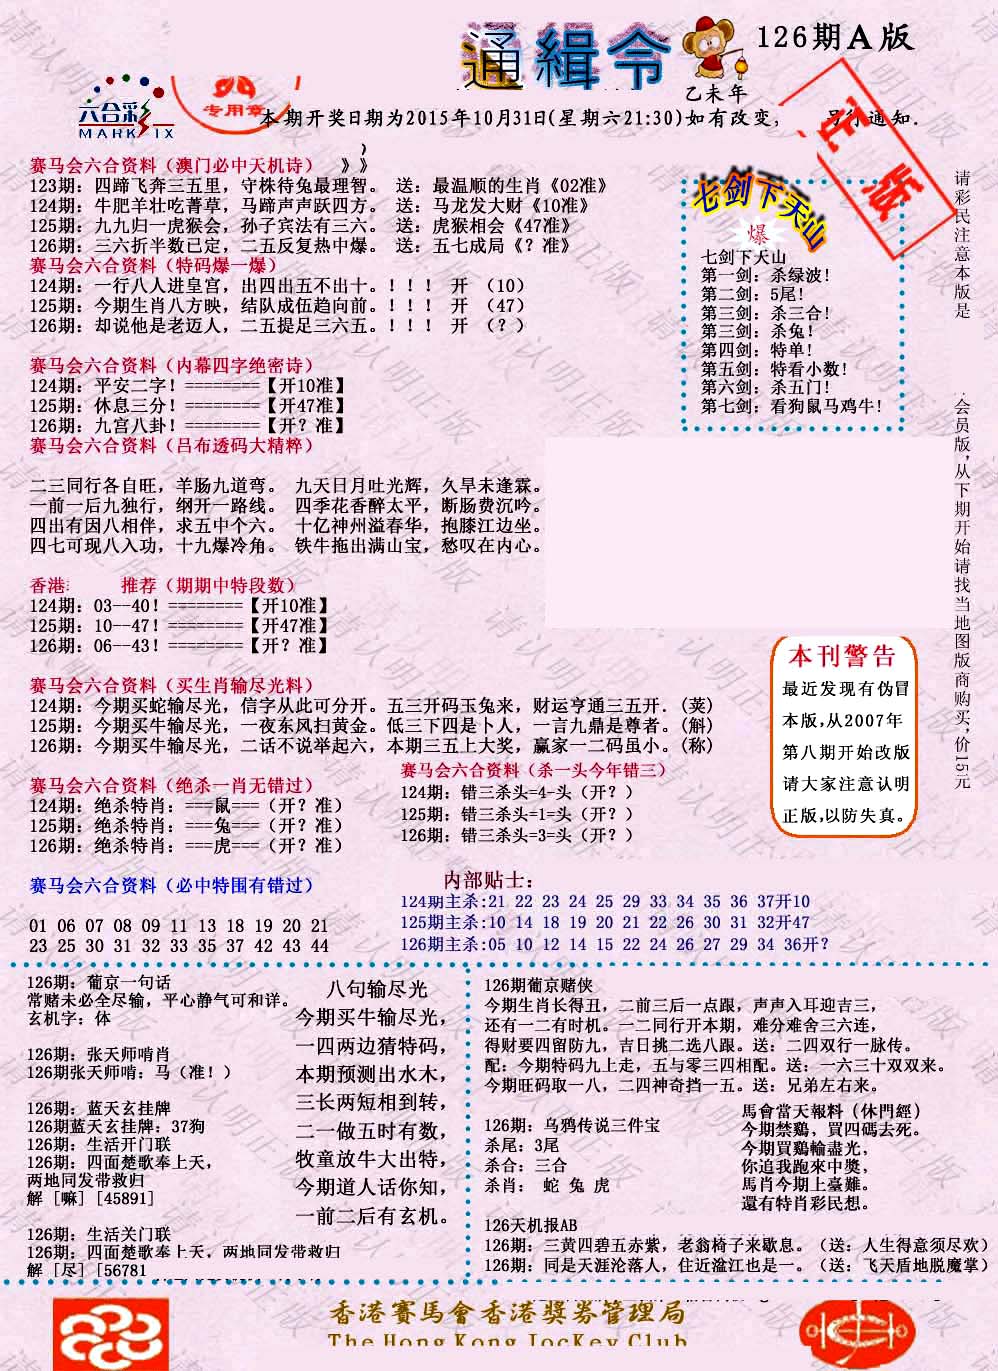 通緝令
126期A版
乙未年
六合彩
MARK SIX
专用章
本期开奖日期为2015年10月31日(星期六21:30)如有改变, 另行通知.
赛马会六合资料（澳门必中天机诗） 》》
123期: 四蹄飞奔三五里，守株待兔最理智。 送: 最温顺的生肖《02准》
124期: 牛肥羊壮吃菁草，马蹄声声跃四方。 送: 马龙发大财《10准》
125期: 九九归一虎猴会，孙子宾法有三六。 送: 虎猴相会《47准》
126期: 三六折半数已定，二五反复热中爆。 送: 五七成局《？准》
赛马会六合资料（特码爆一爆）
124期: 一行八人进皇宫，出四出五不出十。！！！ 开 （10）
125期: 今期生肖八方映，结队成伍趋向前。！！！ 开 （47）
126期: 却说他是老迈人，二五提足三六五。！！！ 开 （？）
赛马会六合资料（内幕四字绝密诗）
124期: 平安二字！========【开10准】
125期: 休息三分！========【开47准】
126期: 九宫八卦！========【开？准】
赛马会六合资料（吕布透码大精粹）
二三同行各自旺，羊肠九道弯。 九天日月吐光辉，久旱未逢霖。
一前一后九独行，纲开一路线。 四季花香醉太平，断肠费沉吟。
四出有因八相伴，求五中个六。 十亿神州溢春华，抱膝江边坐。
四七可现八入功，十九爆冷角。 铁牛拖出满山宝，愁叹在内心。
七剑下天山
爆
七剑下天山
第一剑: 杀绿波!
第二剑: 5尾!
第三剑: 杀三合!
第三剑: 杀兔!
第四剑: 特单!
第五剑: 特看小数!
第六剑: 杀五门!
第七剑: 看狗鼠马鸡牛!
请彩民注意本版是
.会员版，从下期开始请找当地图版商购买，价15元
香港: 推荐（期期中特段数）
124期: 03--40! ========【开10准】
125期: 10--47! ========【开47准】
126期: 06--43! ========【开？准】
赛马会六合资料（买生肖输尽光料）
124期: 今期买蛇输尽光，信字从此可分开。五三开码玉兔来，财运亨通三五开.(荚)
125期: 今期买牛输尽光，一夜东风扫黄金。低三下四是卜人，一言九鼎是尊者。(斛)
126期: 今期买牛输尽光，二话不说举起六，本期三五上大奖，赢家一二码虽小。(称)
本刊警告
最近发现有伪冒
本版,从2007年
第八期开始改版
请大家注意认明
正版,以防失真。
赛马会六合资料（绝杀一肖无错过）
124期: 绝杀特肖: ===鼠===（开？准）
125期: 绝杀特肖: ===兔===（开？准）
126期: 绝杀特肖: ===虎===（开？准）
赛马会六合资料（杀一头今年错三）
124期: 错三杀头=4-头（开？）
125期: 错三杀头=1=头（开？）
126期: 错三杀头=3=头（开？）
赛马会六合资料（必中特围有错过）
01 06 07 08 09 11 13 18 19 20 21
23 25 30 31 32 33 35 37 42 43 44
内部贴士:
124期主杀:21 22 23 24 25 29 33 34 35 36 37开10
125期主杀:10 14 18 19 20 21 22 26 30 31 32开47
126期主杀:05 10 12 14 15 22 24 26 27 29 34 36开？
126期: 葡京一句话
常赌未必全尽输，平心静气可和详。
玄机字: 体
126期: 张天师啃肖
126期张天师啃: 马（准！）
126期: 蓝天玄挂牌
126期蓝天玄挂牌: 37狗
126期: 生活开门联
126期: 四面楚歌奉上天,
两地同发带救归
解 [嘛] [45891]
126期: 生活关门联
126期: 四面楚歌奉上天，两地同发带救归
解 [尽] [56781
八句输尽光
今期买牛输尽光，
一四两边猜特码，
本期预测出水木，
三长两短相到转，
二一做五时有数，
牧童放牛大出特，
今期道人话你知，
一前二后有玄机。
126期葡京赌侠
今期生肖长得丑，二前三后一点跟，声声入耳迎吉三，
还有一二有时机。一二同行开本期，难分难舍三六连，
得财要四留防九，吉日挑二选八跟。送: 二四双行一脉传。
配: 今期特码九上走，五与零三四相配。送: 一六三十双双来。
今期旺码取一八，二四神奇挡一五。送: 兄弟左右来。
126期: 乌鸦传说三件宝
杀尾: 3尾
杀合: 三合
杀肖: 蛇 兔 虎
馬會當天報料（休門經）
今期禁鷄，買四碼去死。
今期買鷄輸盡光，
你追我跑來中獎，
馬肖今期上臺難。
還有特肖彩民想。
126天机报AB
126期: 三黄四碧五赤紫，老翁椅子来歇息。（送: 人生得意须尽欢）
126期: 同是天涯沦落人，住近溢江也是一。（送: 飞天盾地脱魔掌）
香港賽馬會香港獎券管理局
The Hong Kong JocKey Club